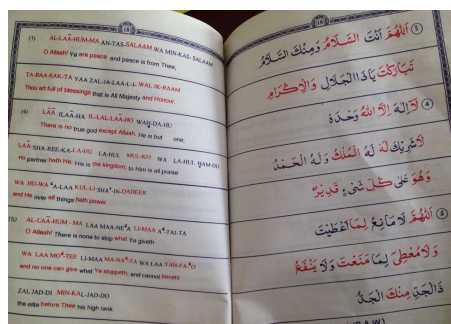 (3) AL-LAÃ-HUM-MA AN-TAS-SALAAM WA MIN-KAS- SALAAM
O Allaah! Ye are peace and peace is from Thee,
TA-BAA-RAK-TA YAA ZAL-JA-LAA-L-I- WAL IK-RAAM
Thou art full of blessings that is All Majesty and Honour.
(4) LÃÃ ILAÃ-HA IL-LAL-LAÃ-HO WAḤ-DA-HU
There is no true god except Allaah. He is but one:
LAÃ-SHA-REE-KA-LA-HU LA-HUL MUL-KO WA LA-HUL ḤAM-DU
no partner hath He. His is the kingdom, to Him is all praise
WA HU-WA A-LAA KUL-LI-SHA-IN-QADEER
and He over all things hath power.
(5) AL-LAÃ-HUM - MA LAA MAA-NE-A LI-MAA A-TAI-TA
O Allaah! There is none to stop what Ye giveth
WA LAA MO-TEE LI-MAA MA-NA-TA WA LAA YAN-FA-O
and no one can give what Ye stoppeth, and cannot benefit
ZAL JAD-DI MIN-KAL-JAD-DO
the elite before Thee his high rank
اَللّٰهُمَّ اَنْتَ السَّلَامُ وَمِنْكَ السَّلَامُ
تَبَارَكْتَ يَاذَا الْجَلَالِ وَالْاِكْرَامِ
لَا اِلٰهَ اِلَّا اللّٰهُ وَحْدَهٗ
لَا شَرِيْكَ لَهٗ لَهُ الْمُلْكُ وَلَهُ الْحَمْدُ
وَهُوَ عَلٰى كُلِّ شَىْءٍ قَدِيْرٌ
اَللّٰهُمَّ لَا مَانِعَ لِمَا اَعْطَيْتَ
وَلَا مُعْطِىَ لِمَا مَنَعْتَ وَلَا يَنْفَعُ
ذَا الْجَدِّ مِنْكَ الْجَدُّ